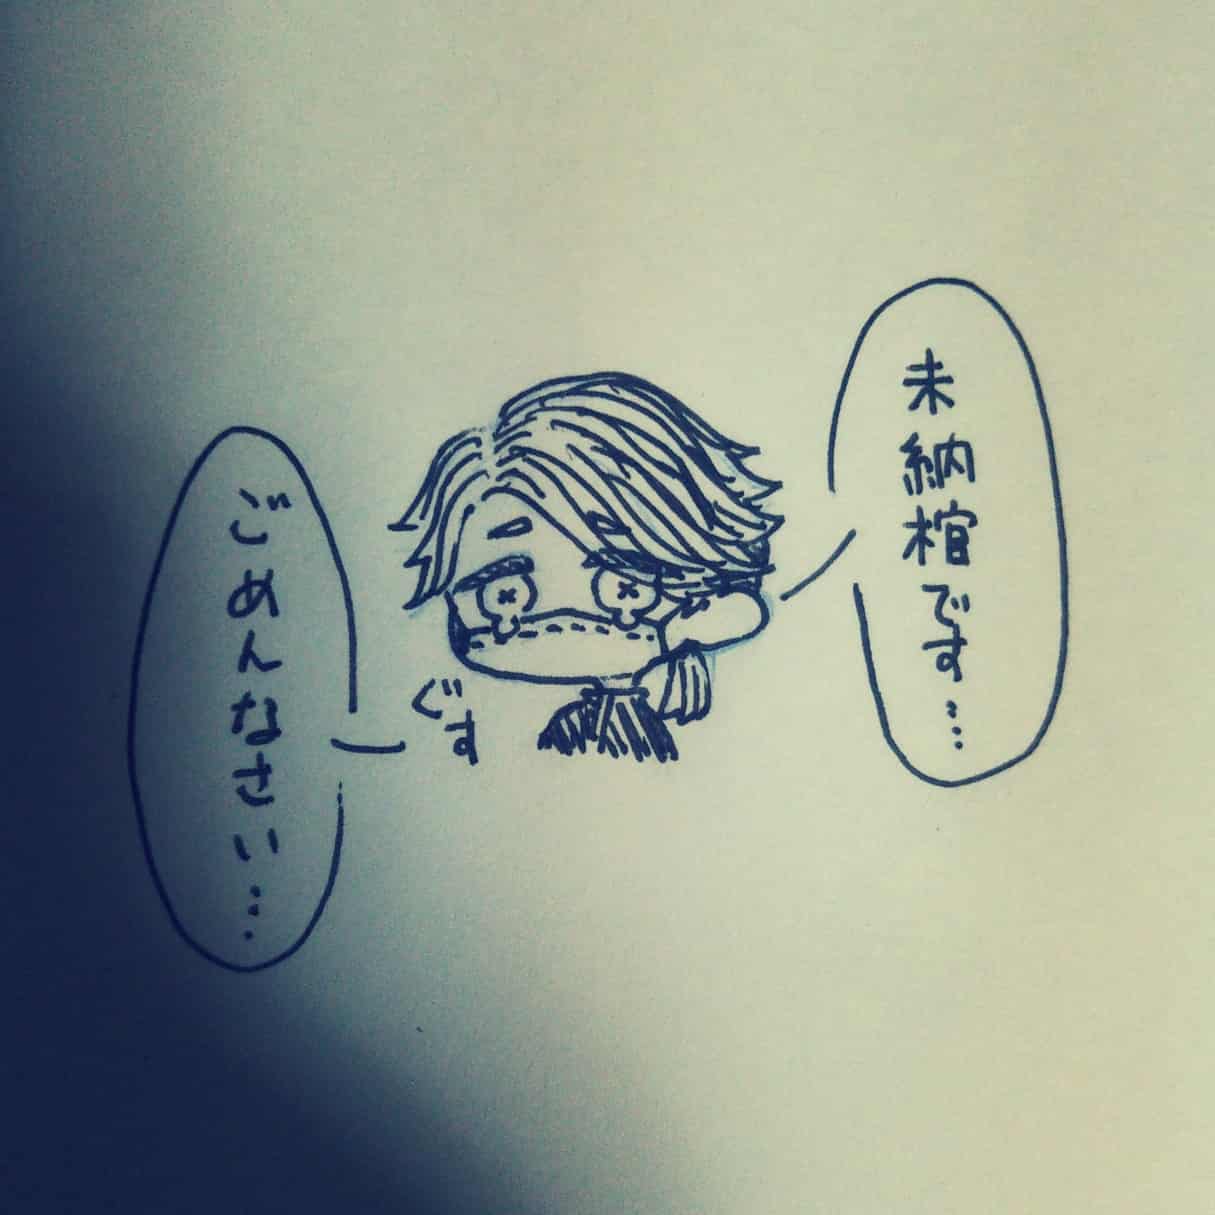 未納棺です…
ごめんなさい…
ぐす